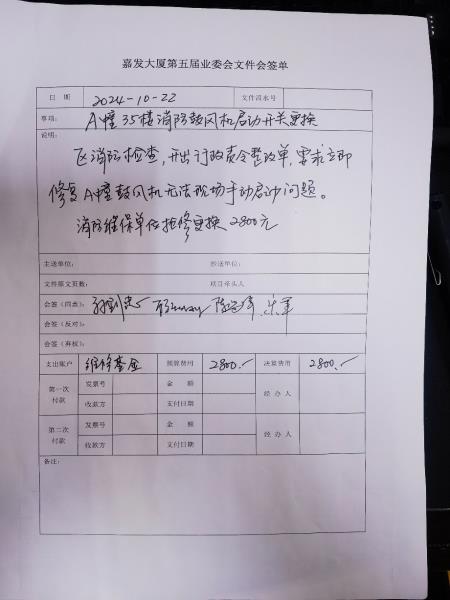 嘉发大厦第五届业委会文件会签单
日 期 2024-10-22 文件流水号
事项: A幢35楼消防鼓风机启动开关更换
说明:
区消防检查,开出行政责令整改单,要求立即
修复A幢鼓风机无法现场手动启动问题。
消防维保单位抢修更换2800元
主送单位: 抄送单位:
文件原文页数: 项目牵头人
会签(同意):
会签(反对):
会签(弃权):
支出账户 维修基金 预算费用 2800.- 决算费用 2800.-
第一次付款 发票号 金 额 经 办 人
收款方 支付日期
第二次付款 发票号 金 额 经 办 人
收款方 支付日期
备注: